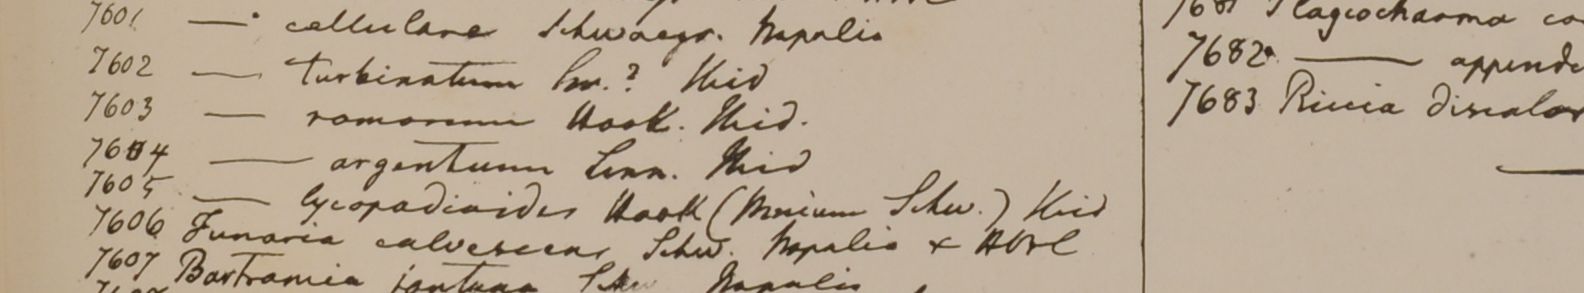 7601 — cellulare Schwaegr. Napalia
7602 — turbinatum Sw.? Ibid
7603 — ramosum Hook. Ibid.
7604 — argenteum Linn. Ibid
7605 — lycopodioides Hook (Mnium Schw.) Ibid
7606 Funaria calvescens Schw. Napalia &
7607 Bartramia Napalia
Plagiochasma co
7682 — append
7683 Riccia discolor